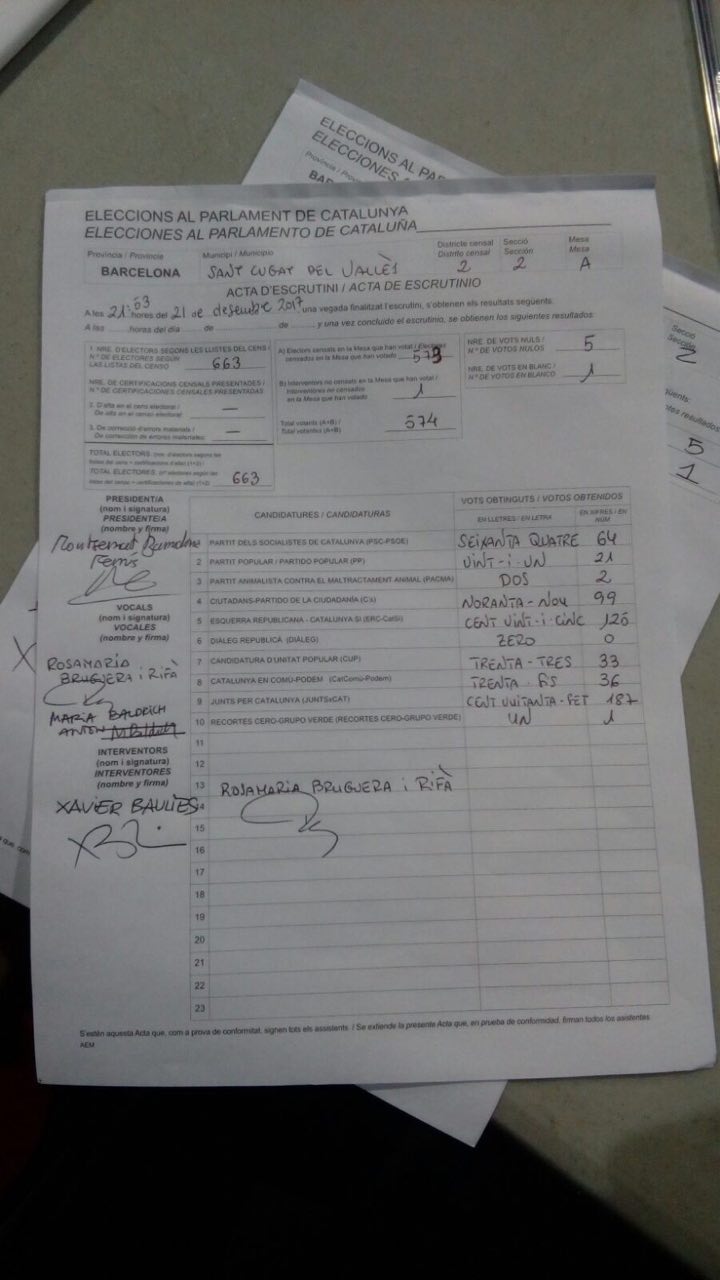 ELECCIONS AL PAR
ELECCIONES AL PA
BAR
ELECCIONS AL PARLAMENT DE CATALUNYA
ELECCIONES AL PARLAMENTO DE CATALUÑA
Província / Provincie Municipi / Municipio Districte censal Secció Mesa
Distrito censal Sección Mesa
BARCELONA SANT CUGAT DEL VALLÈS 2 2 A
ACTA D'ESCRUTINI / ACTA DE ESCRUTINIO
A les 21:53 hores del 21 de desembre 2017 una vegada finalitzat l'escrutini, s'obtenen els resultats següents:
A las horas del día de de y una vez concluido el escrutinio, se obtienen los siguientes resultados:
1. NRE. D'ELECTORS SEGONS LES LLISTES DEL CENS /
N.º DE ELECTORES SEGÚN
LAS LISTAS DEL CENSO 663
NRE. DE CERTIFICACIONS CENSALS PRESENTADES /
N.º DE CERTIFICACIONES CENSALES PRESENTADAS
2. D'alta en el cens electoral /
De alta en el censo electoral —
3. De correcció d'errors materials /
De corrección de errores materiales: —
TOTAL ELECTORS: (nre. d'electors segons les
llistes del cens + certificacions d'alta) (1+2) /
TOTAL ELECTORES: (nº electores según las
listas del censo + certificaciones de alta) (1+2) 663
A) Electors censats en la Mesa que han votat / Electores
censados en la Mesa que han votado 573
B) Interventors no censats en la Mesa que han votat /
Interventores no censados
en la Mesa que han votado 1
Total votants (A+B) /
Total votantes (A+B) 574
NRE. DE VOTS NULS /
N.º DE VOTOS NULOS 5
NRE. DE VOTS EN BLANC /
N.º DE VOTOS EN BLANCO 1
Secció
Sección
2
güents:
ntes resultados
5
1
PRESIDENT/A
(nom i signatura)
PRESIDENTE/A
(nombre y firma)
Montserrat
VOCALS
(nom i signatura)
VOCALES
(nombre y firma)
ROSAMARIA
BRUGUERA i RIFÀ
MARIA BALDRICH
ANTON
INTERVENTORS
(nom i signatura)
INTERVENTORES
(nombre y firma)
XAVIER BAULIES
CANDIDATURES / CANDIDATURAS VOTS OBTINGUTS / VOTOS OBTENIDOS
EN LLETRES / EN LETRA EN XIFRES / EN NÚM
1 PARTIT DELS SOCIALISTES DE CATALUNYA (PSC-PSOE) SEIXANTA QUATRE 64
2 PARTIT POPULAR / PARTIDO POPULAR (PP) VINT-I-UN 21
3 PARTIT ANIMALISTA CONTRA EL MALTRACTAMENT ANIMAL (PACMA) DOS 2
4 CIUTADANS-PARTIDO DE LA CIUDADANÍA (C's) NORANTA-NOU 99
5 ESQUERRA REPUBLICANA - CATALUNYA SÍ (ERC-CatSí) CENT VINT-I-CINC 125
6 DIÀLEG REPUBLICÀ (DIÀLEG) ZERO 0
7 CANDIDATURA D'UNITAT POPULAR (CUP) TRENTA-TRES 33
8 CATALUNYA EN COMÚ-PODEM (CatComú-Podem) TRENTA-SIS 36
9 JUNTS PER CATALUNYA (JUNTSxCAT) CENT VUITANTA-SET 187
10 RECORTES CERO-GRUPO VERDE (RECORTES CERO-GRUPO VERDE) UN 1
11
12
13 ROSAMARIA BRUGUERA i RIFÀ
14
15
16
17
18
19
20
21
22
23
S'estén aquesta Acta que, com a prova de conformitat, signen tots els assistents. / Se extiende la presente Acta que, en prueba de conformidad, firman todos los asistentes.
AEM